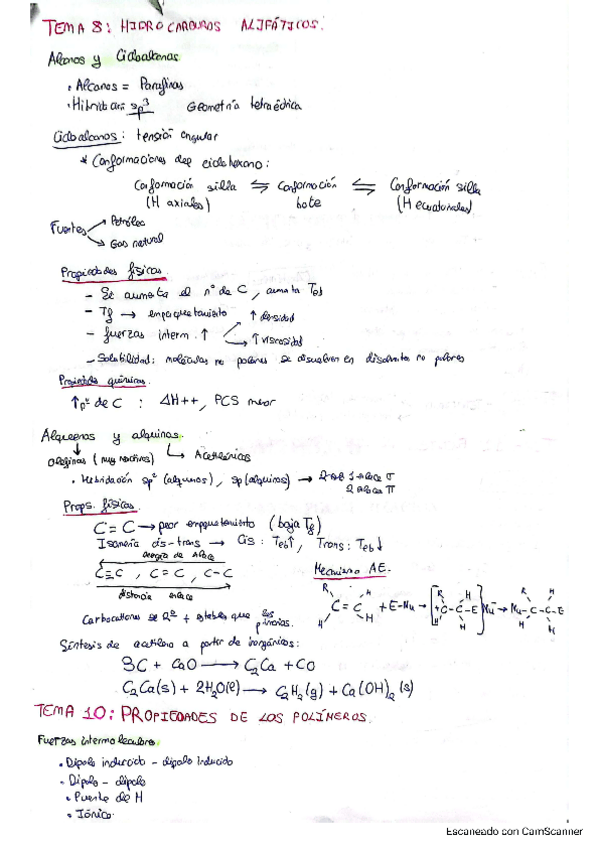 TEMA 8: HIDROCARBUROS ALIFÁTICOS.
Alcanos y Cicloalcanos
• Alcanos = Parafinas
• Hibridación sp³ Geometría tetraédrica
Cicloalcanos: tensión angular
* Conformaciones del ciclohexano:
Conformación silla ⇋ Conformación ⇋ Conformación silla
(H axiales) bote (H ecuatoriales)
Fuentes
Petróleo
Gas natural
Propiedades físicas.
- Si aumenta el nº de C, aumenta Teb
- Tf → empaquetamiento ↑ densidad
- fuerzas interm. ↑ ↑ viscosidad
- Solubilidad: moléculas no polares se disuelven en disolventes no polares
Propiedades químicas.
↑nº de C : ΔH++, PCS menor
Alquenos y alquinos.
Olefinas (muy reactivos) Acetilénicos
• Hibridación sp² (alquenos), sp (alquinos) → 1 enlace σ
2 enlaces π
Props. físicas.
C=C → peor empaquetamiento (baja Tf)
Isomería cis-trans → Cis: Teb↑, Trans: Teb↓
energía de enlace
C≡C, C=C, C-C
distancia enlace
Mecanismo AE.
R H
C=C + E-Nu → [+C-C-E] Nu⁻ → Nu-C-C-E
H H
Carbocationes 2º + estables que los primarios.
Síntesis de acetileno a partir de inorgánicos:
3C + CaO → C₂Ca + CO
C₂Ca(s) + 2H₂O(l) → C₂H₂(g) + Ca(OH)₂(s)
TEMA 10: PROPIEDADES DE LOS POLÍMEROS.
Fuerzas intermoleculares
• Dipolo inducido - dipolo inducido
• Dipolo - dipolo
• Puente de H
• Iónico
Escaneado con CamScanner